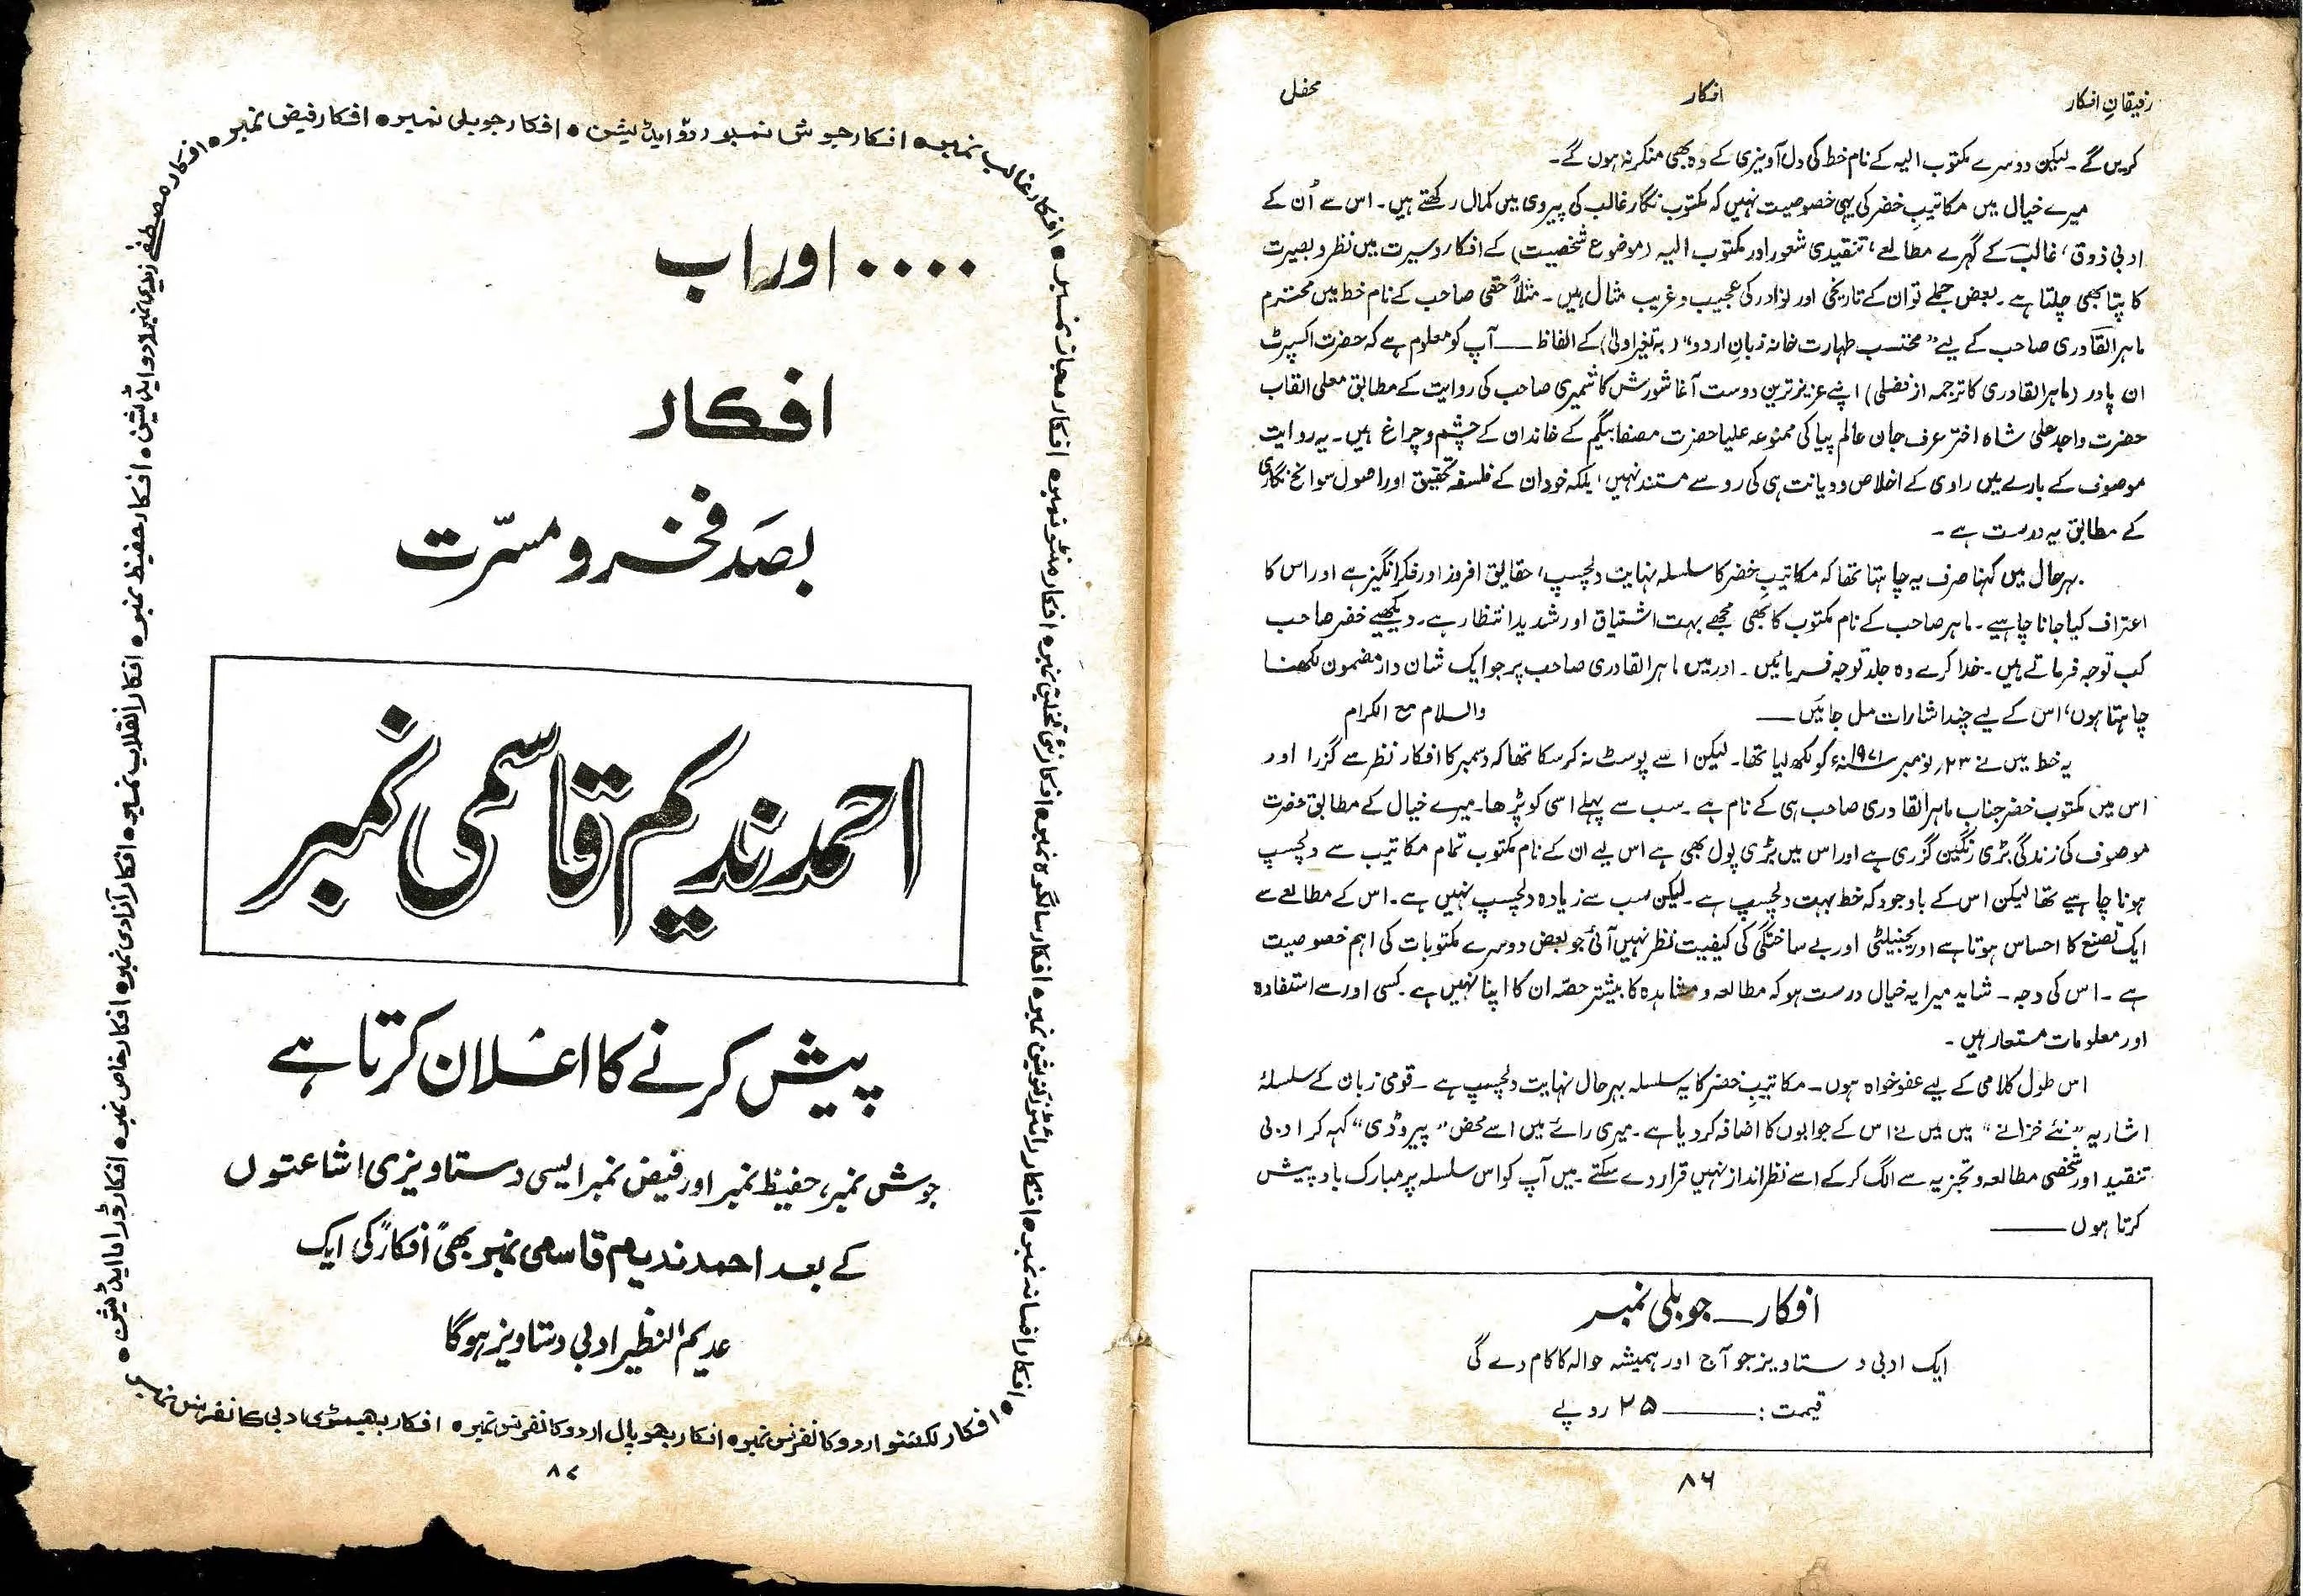 رفیقانِ افکار
افکار
محفل
کریں گے۔ لیکن دوسرے مکتوب الیہ کے نام خط کی دل آویزی کے وہ بھی منکر نہ ہوں گے۔
میرے خیال میں مکاتیبِ خضر کی یہی خصوصیت نہیں کہ مکتوب نگار غالب کی پیروی میں کمال رکھتے ہیں۔ اس سے اُن کے
ادبی ذوق، غالبؔ کے گہرے مطالعے، تنقیدی شعور اور مکتوب الیہ (موضوع شخصیت) کے افکار و سیرت میں نظر و بصیرت
کا پتا بھی چلتا ہے۔ بعض جملے تو ان کے تاریخی اور نوادر کی عجیب و غریب مثال ہیں۔ مثلاً حقی صاحب کے نام خط میں محترم
ماہر القادری صاحب کے لیے "محتسب طہارت خانہ زبانِ اردو" (بہ تغیر اولیٰ) کے الفاظ — آپ کو معلوم ہے کہ حضرت اکسپرٹ
ان پاور (ماہر القادری کا ترجمہ از فضلی) اپنے عزیز ترین دوست آغا شورش کاشمیری صاحب کی روایت کے مطابق معلی القاب
حضرت واجد علی شاہ اختر عرف جان عالم پیا کی ممنوعہ علیا حضرت مصفا بیگم کے خاندان کے چشم و چراغ ہیں۔ یہ روایت
موصوف کے بارے میں راوی کے اخلاص و دیانت ہی کی رو سے مستند نہیں، بلکہ خود ان کے فلسفہ تحقیق اور اصول سوانح نگاری
کے مطابق یہ درست ہے۔
بہرحال میں کہنا صرف یہ چاہتا تھا کہ مکاتیبِ خضر کا سلسلہ نہایت دلچسپ، حقایق افروز اور فکر انگیز ہے اور اس کا
اعتراف کیا جانا چاہیے۔ ماہر صاحب کے نام مکتوب کا بھی مجھے بہت اشتیاق اور شدید انتظار ہے۔ دیکھیے خضر صاحب
کب توجہ فرماتے ہیں۔ خدا کرے وہ جلد توجہ فرمائیں۔ اور میں ماہر القادری صاحب پر جو ایک شان دار مضمون لکھنا
چاہتا ہوں، اس کے لیے چند اشارات مل جائیں —
والسلام مع الکرام
یہ خط میں نے ۲۳ر نومبر ۱۹۷۱ء کو لکھ لیا تھا۔ لیکن اسے پوسٹ نہ کر سکا تھا کہ دسمبر کا افکار نظر سے گزرا اور
اس میں مکتوب خضر جناب ماہر القادری صاحب ہی کے نام ہے۔ سب سے پہلے اسی کو پڑھا۔ میرے خیال کے مطابق حضرت
موصوف کی زندگی بڑی رنگین گزری ہے اور اس میں بڑی پول بھی ہے اس لیے ان کے نام مکتوب تمام مکاتیب سے دلچسپ
ہونا چاہیے تھا لیکن اس کے باوجود کہ خط بہت دلچسپ ہے۔ لیکن سب سے زیادہ دلچسپ نہیں ہے۔ اس کے مطالعے سے
ایک تصنع کا احساس ہوتا ہے اور یجنیلٹی اور بے ساختگی کی کیفیت نظر نہیں آئی جو بعض دوسرے مکتوبات کی اہم خصوصیت
ہے۔ اس کی وجہ۔ شاید میرا یہ خیال درست ہو کہ مطالعہ و مشاہدہ کا بیشتر حصہ ان کا اپنا نہیں ہے۔ کسی اور سے استفادہ
اور معلومات مستعار ہیں۔
اس طول کلامی کے لیے عفو خواہ ہوں۔ مکاتیبِ خضر کا یہ سلسلہ بہرحال نہایت دلچسپ ہے۔ قومی زبان کے سلسلۂ
اشاریہ "نئے خزانے" میں میں نے اس کے جوابوں کا اضافہ کر دیا ہے۔ میری رائے میں اسے محض "پیروڈی" کہہ کر ادبی
تنقید اور شخصی مطالعہ و تجزیہ سے الگ کر کے اسے نظر انداز نہیں قرار دے سکتے۔ میں آپ کو اس سلسلہ پر مبارک باد پیش
کرتا ہوں —
افکار — جوبلی نمبر
ایک ادبی دستاویز جو آج اور ہمیشہ حوالہ کا کام دے گی
قیمت: — ۲۵ روپے
۸۶
افکار مصطفےٰ زیدی نمبر (دو ایڈیشن) • افکار حفیظ نمبر • افکار انقلاب نمبر • افکار آزادی نمبر • افکار خاص نمبر • افکار ڈراما ایڈیشن •
افکار غالب نمبر • افکار جوش نمبر (دو ایڈیشن) • افکار جوبلی نمبر • افکار فیض نمبر •
• افکار مجاز نمبر • افکار منٹو نمبر • افکار نئی تخلیق نمبر • افکار سالگرہ نمبر • افکار رائٹرز کنونشن نمبر • افکار افسانہ نمبر •
افکار لکھنؤ اردو کانفرنس نمبر • افکار بھوپال اردو کانفرنس نمبر • افکار بھیمڑی ادبی کانفرنس نمبر
.... اور اب
افکار
بصد فخر و مسرّت
احمد ندیم قاسمی نمبر
پیش کرنے کا اعلان کرتا ہے
جوش نمبر، حفیظ نمبر اور فیض نمبر ایسی دستاویزی اشاعتوں
کے بعد احمد ندیم قاسمی نمبر بھی "افکار" کی ایک
عدیم النظیر ادبی دستاویز ہوگا
۸۷